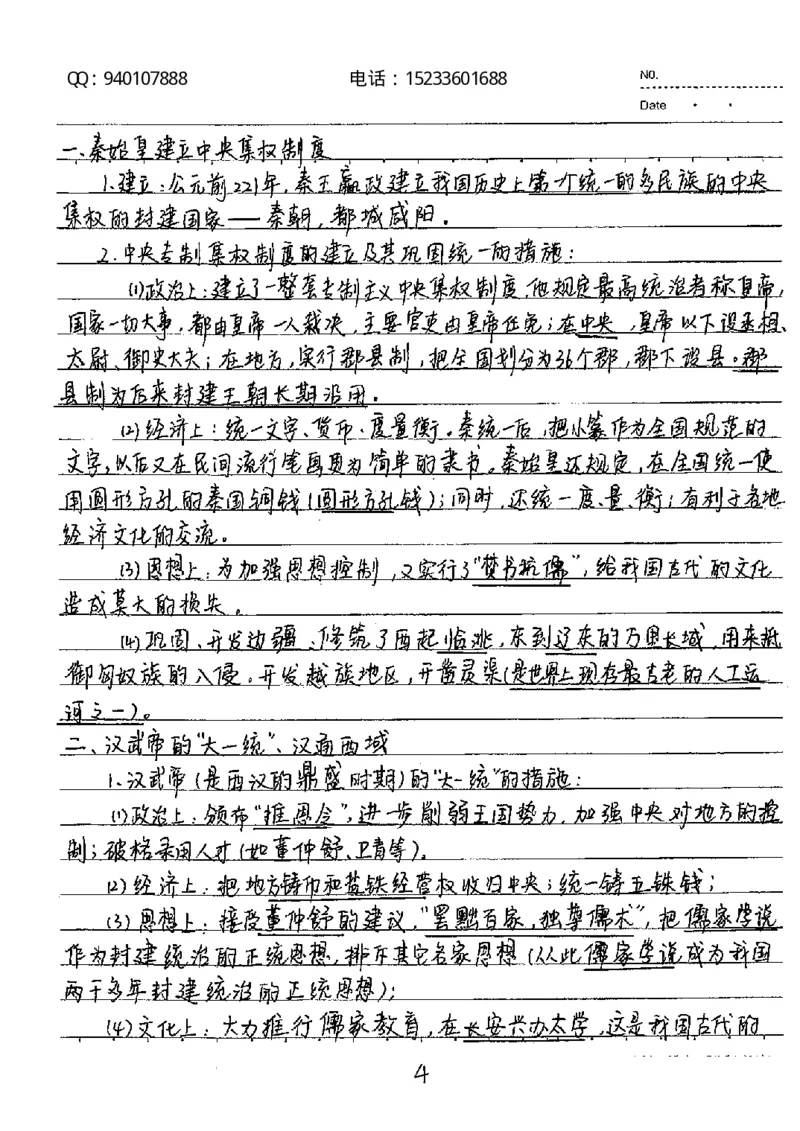 QQ：940107888 电话：15233601688 No.
Date
一、秦始皇建立中央集权制度
1.建立：公元前221年，秦王嬴政建立我国历史上第一个统一的多民族的中央
集权的封建国家——秦朝，都城咸阳。
2.中央专制集权制度的建立及其巩固统一的措施：
(1)政治上：建立了一整套专制主义中央集权制度，他规定最高统治者称皇帝，
国家一切大事，都由皇帝一人裁决，主要官吏由皇帝任免；在中央，皇帝以下设丞相、
太尉、御史大夫；在地方，实行郡县制，把全国划分为36个郡，郡下设县。郡
县制为后来封建王朝长期沿用。
(2)经济上：统一文字、货币、度量衡。秦统一后，把小篆作为全国规范的
文字，以后又在民间流行笔画更为简单的隶书。秦始皇还规定，在全国统一使
用圆形方孔的秦国铜钱(圆形方孔钱)；同时，还统一度、量、衡；有利于各地
经济文化的交流。
(3)思想上：为加强思想控制，又实行了“焚书坑儒”，给我国古代的文化
造成莫大的损失。
(4)巩固、开发边疆、修筑了西起临洮，东到辽东的万里长城，用来抵
御匈奴族的入侵，开发越族地区，开凿灵渠(是世界上现存最古老的人工运
河之一)。
二、汉武帝的“大一统”、汉通西域
1、汉武帝(是西汉的鼎盛时期)的“大一统”的措施：
(1)政治上：颁布“推恩令”，进一步削弱王国势力，加强中央对地方的控
制；破格录用人才(如董仲舒、卫青等)。
(2)经济上：把地方铸币和盐铁经营权收归中央；统一铸五铢钱；
(3)思想上：接受董仲舒的建议，“罢黜百家，独尊儒术”，把儒家学说
作为封建统治的正统思想，排斥其它各家思想(从此儒家学说成为我国
两千多年封建统治的正统思想)；
(4)文化上：大力推行儒家教育，在长安兴办太学，这是我国古代的
4